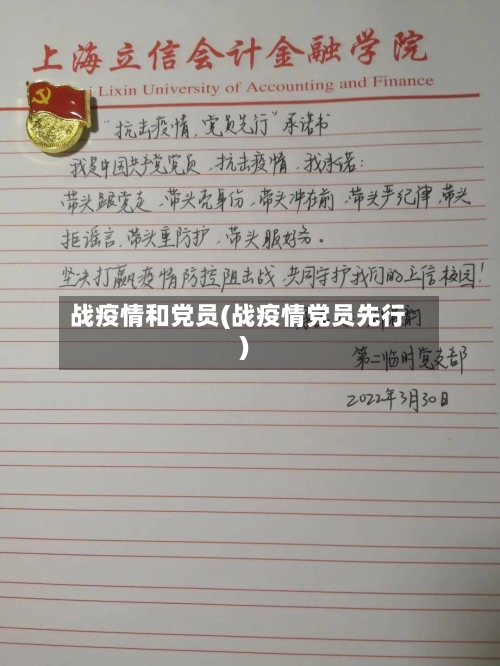 上海立信会计金融学院
i Lixin University of Accounting and Finance
“抗击疫情,党员先行”承诺书
我是中国共产党党员,抗击疫情,我承诺:
带头跟党走,带头亮身份,带头冲在前,带头严纪律,带头
拒谣言,带头重防护,带头服好务。
坚决打赢疫情防控阻击战,共同守护我们的立信校园!
战疫情和党员(战疫情党员先行
)
第二临时党支部
2022年3月30日